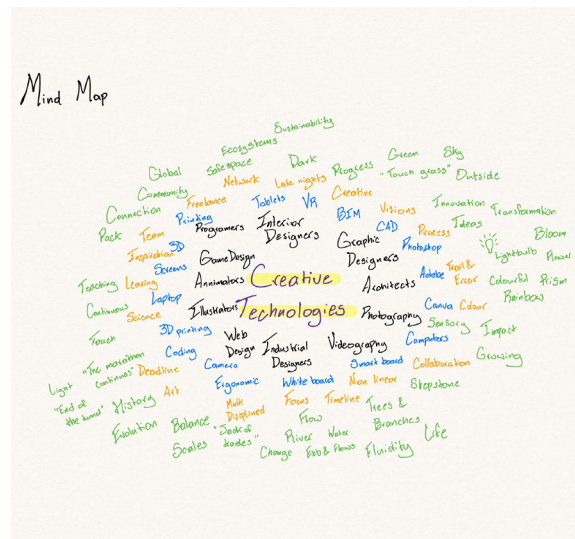 Mind Map
Sustainability
Ecosystems
Global
Safespace
Dark
Progress
Green
Sky
Community
Network
Late nights
Creative
"Touch grass"
Outside
Connection
Freelance
Tablets
VR
BIM
Visions
Innovation
Transformation
Pack
Team
Printing
Programers
Interior
Designers
CAD
Process
Ideas
Bloom
Inspiration
3D
Screens
GameDesign
Graphic
Designers
Photoshop
Lightbulb
Flower
Teaching
Learing
Annimators
Creative
Architects
Adobe
Trail &
Error
Colourful
Prism
Continuous
Laptop
Illustrators
Technologies
Photography
Canva
Colour
Rainbow
Science
Touch
3D printing
Web
Design
Industrial
Designers
Videography
Computers
Sensory
Impact
"The marathon
continues"
Coding
Camera
Smart board
Collaboration
Growing
Light
"End of
the tunnel"
Deadline
Art
Ergonomic
White board
Non linear
Stepstone
History
Multi
Focus
Timeline
Trees &
Branches
Evolution
Balance
"Jack of
trades"
Flow
River
Water
Life
Scales
Change
Ebb & Flows
Fluidity